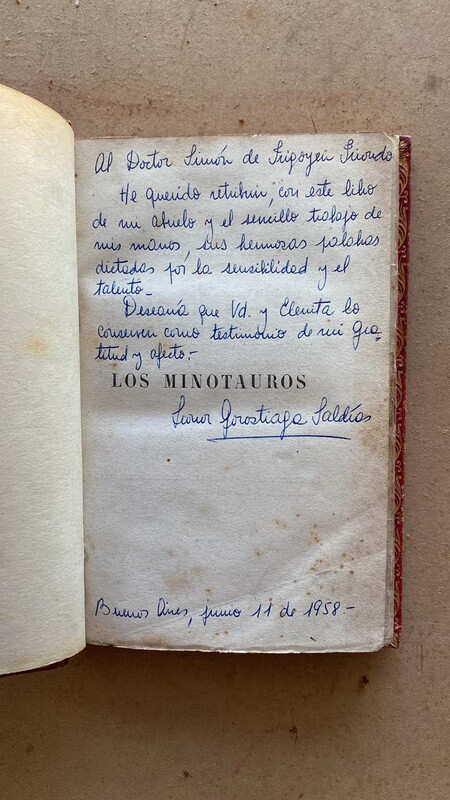 Al Doctor Simón de Irigoyen Iriondo
He querido retribuir, con este libro
de mi abuelo y el sencillo trabajo de
mis manos, sus hermosas palabras
dictadas por la sensibilidad y el
talento_
Desearía que Vd. y Clenita lo
conserven como testimonio de mi gra-
titud y afecto.-
LOS MINOTAUROS
Leonor Gorostiaga Saldías
Buenos Aires, junio 11 de 1958-